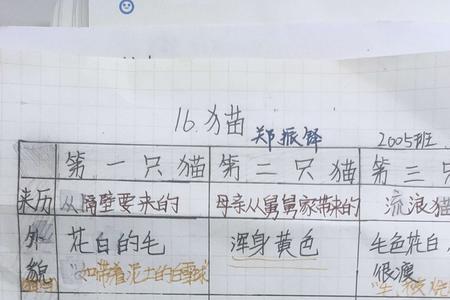 16.猫苗
郑振铎 2005班
第一只猫 第二只猫 第三只
来历 从隔壁要来的 母亲从舅舅家带来的 流浪猫
外貌 花白的毛 浑身黄色 毛色花白,
"如带着泥土的白雪球 很瘦